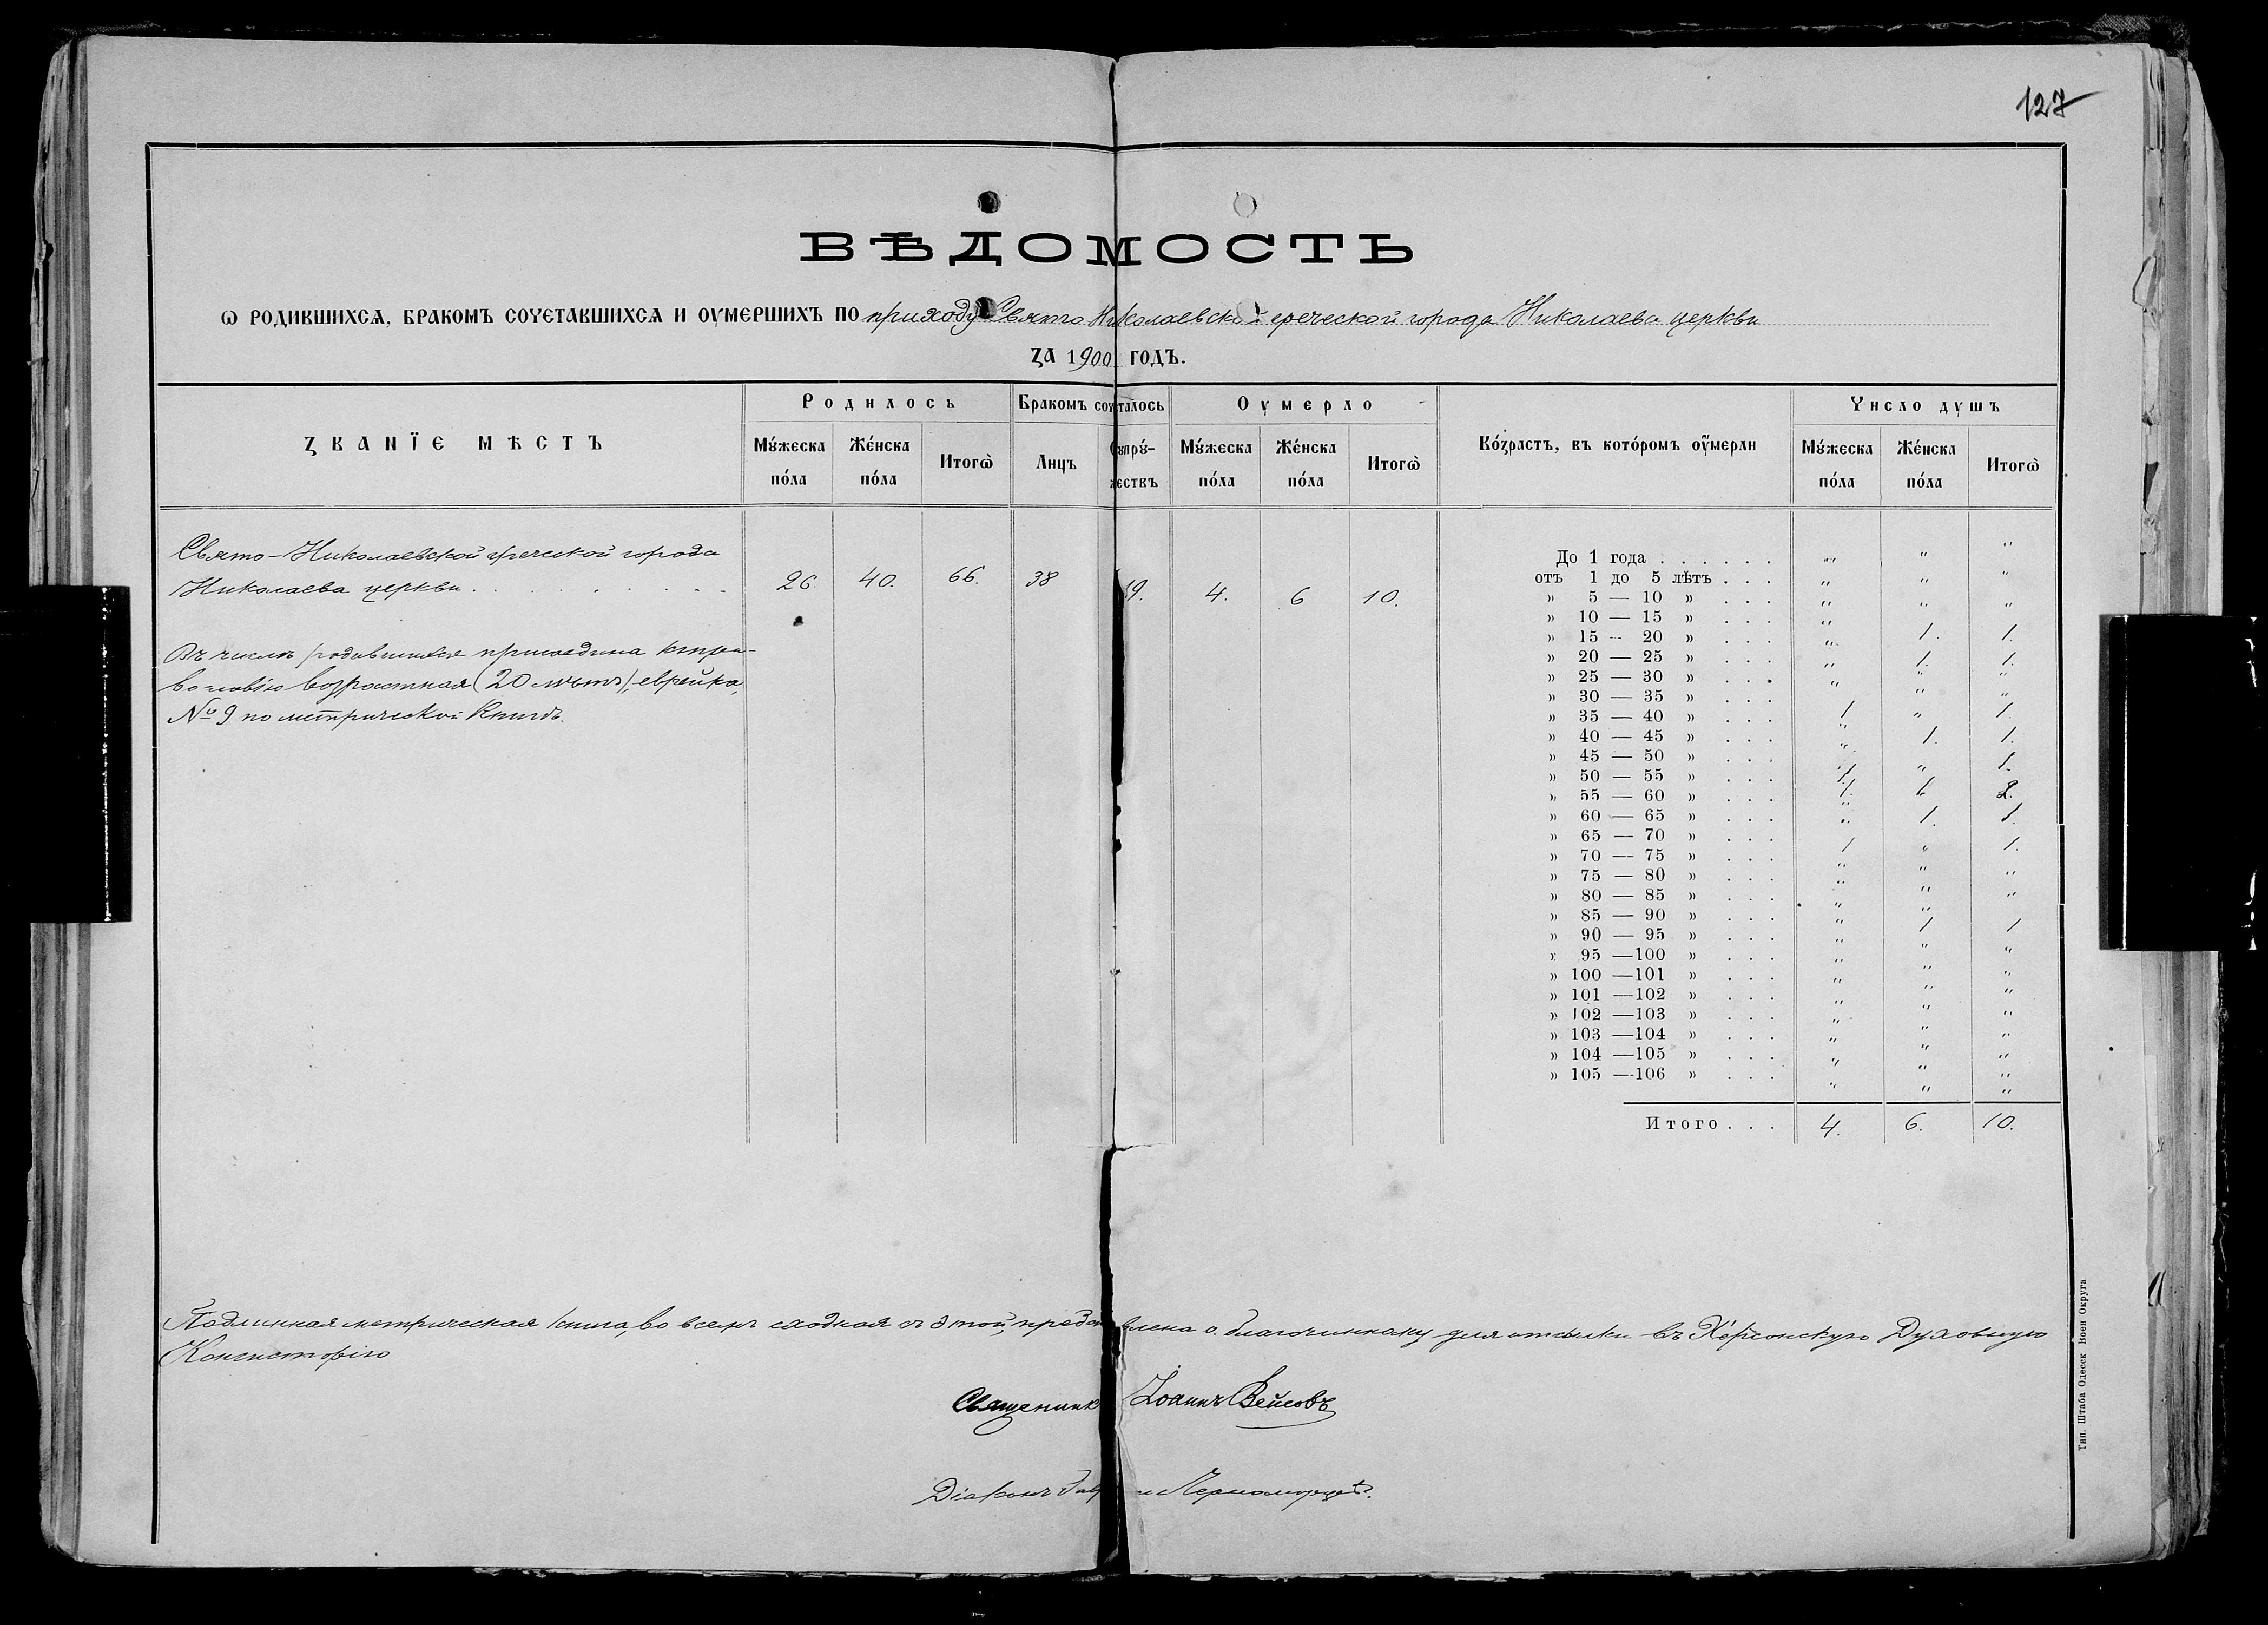 127
ВѢДОМОСТЬ
Ѡ РОДИВШИХСѦ, БРАКОМЪ СОЧЕТАВШИХСѦ И ОУМЕРШИХЪ ПО приходу Свято Николаевской греческой города Николаева церкви
ЗА 1900 ГОДЪ.
ЗВАНЇЕ МѢСТЪ
Родилось
Бракомъ сочеталось
Оумерло
Число душъ
Мꙋ́жеска по́ла
Же́нска по́ла
Итогѡ̀
Лицъ
Сꙋпрꙋ́жествъ
Мꙋ́жеска по́ла
Же́нска по́ла
Итогѡ̀
Во́зрастъ, въ кото́ромъ оу҆́мерли
Мꙋ́жеска по́ла
Же́нска по́ла
Итогѡ̀
Свято-Николаевской греческой города
Николаева церкви . . . . . . . . 26. 40. 66. 38 19. 4. 6 10.
Въ числѣ родившихся присоедина къ пра-
вославію возрастная (20 лѣтъ), еврейка,
№ 9 по метрической книгѣ.
До 1 года . . . . . . " " "
отъ 1 до 5 лѣтъ . . . " " "
» 5 — 10 » . . . " " "
» 10 — 15 » . . . "
» 15 — 20 » . . . " 1. 1.
» 20 — 25 » . . . " 1. 1.
» 25 — 30 » . . . " " "
» 30 — 35 » . . . " "
» 35 — 40 » . . . 1 " 1.
» 40 — 45 » . . . " 1. 1.
» 45 — 50 » . . . "
» 50 — 55 » . . . 1. " 1.
» 55 — 60 » . . . 1. 1. 2.
» 60 — 65 » . . . " 1. 1.
» 65 — 70 » . . .
» 70 — 75 » . . . 1 " 1.
» 75 — 80 » . . . " " "
» 80 — 85 » . . . " " "
» 85 — 90 » . . . " "
» 90 — 95 » . . . " 1 1
» 95 —100 » . . . " " "
» 100 —101 » . . . " " "
» 101 —102 » . . . " " "
» 102 —103 » . . . " " "
» 103 —104 » . . . " " "
» 104 —105 » . . . " " "
» 105 —106 » . . . " " "
Итого . . . 4. 6. 10.
Подлинная метрическая книга, во всемъ сходная съ этой, представлена о. благочинному для отсылки въ Херсонскую Духовную
Консисторію
Священникъ Іоаннъ Вейсовъ
Діаконъ Черноморцевъ.
Тип. Штаба Одесск Воен Округа